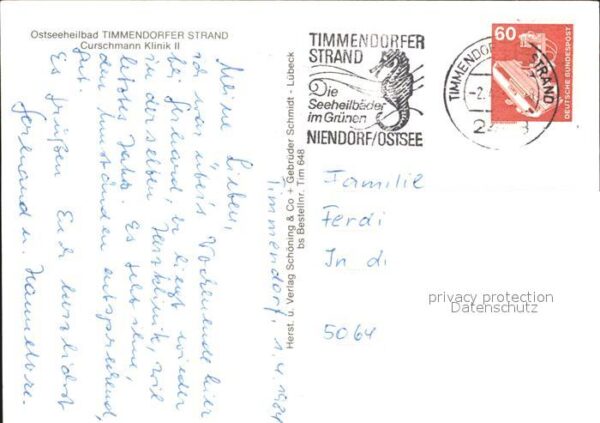 Ostseeheilbad TIMMENDORFER STRAND
Curschmann Klinik II
Timmendorf, 1.4.1984
Meine Lieben,
ich war übers Wochenende hier
bei Gerhard, er liegt wieder
in derselben Herzklinik, wie
letztes Jahr. Es geht ihm,
den Umständen entsprechend,
gut.
Es grüßen Euch herzlichst
Gerhard u. Hannelore.
Herst. u. Verlag Schöning & Co + Gebrüder Schmidt - Lübeck
bs Bestellnr. Tim 648
TIMMENDORFER
STRAND
Die
Seeheilbäder
im Grünen
NIENDORF/OSTSEE
TIMMENDORFER STRAND
60
DEUTSCHE BUNDESPOST
Familie
Ferdi
In d.
5064
privacy protection
Datenschutz